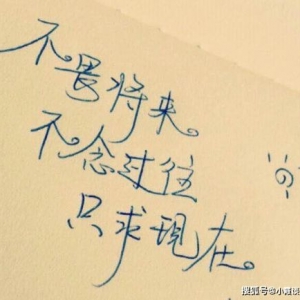 不畏将来。
不念过往
只求现在。
搜狐号@小嘴侯